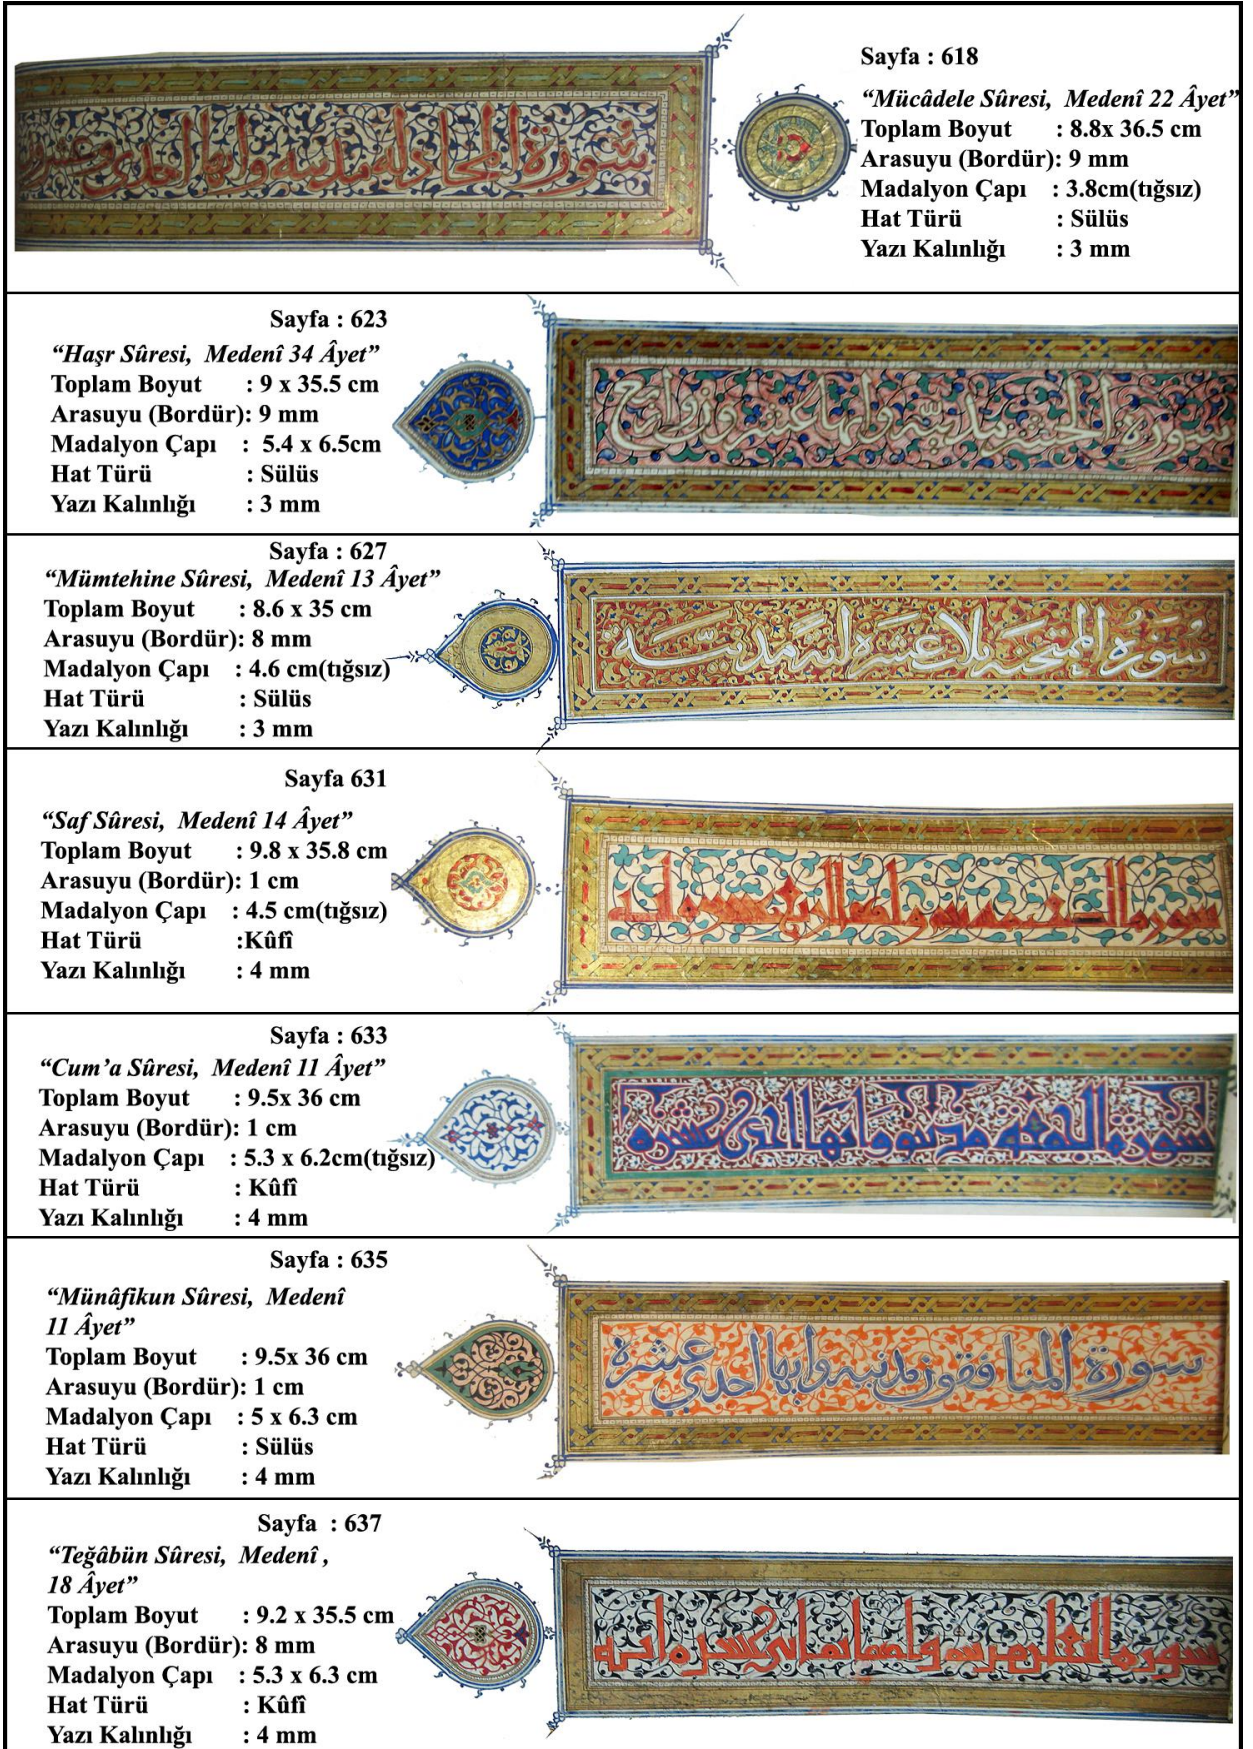 Sayfa : 618
“Mücâdele Sûresi, Medenî 22 Âyet”
Toplam Boyut : 8.8x 36.5 cm
Arasuyu (Bordür): 9 mm
Madalyon Çapı : 3.8cm(tığsız)
Hat Türü : Sülüs
Yazı Kalınlığı : 3 mm
سورة المجادله مدنيه وايها احدى
Sayfa : 623
“Haşr Sûresi, Medenî 34 Âyet”
Toplam Boyut : 9 x 35.5 cm
Arasuyu (Bordür): 9 mm
Madalyon Çapı : 5.4 x 6.5cm
Hat Türü : Sülüs
Yazı Kalınlığı : 3 mm
سورة الحشر مدنيه وايها عشرون واربع
Sayfa : 627
“Mümtehine Sûresi, Medenî 13 Âyet”
Toplam Boyut : 8.6 x 35 cm
Arasuyu (Bordür): 8 mm
Madalyon Çapı : 4.6 cm(tığsız)
Hat Türü : Sülüs
Yazı Kalınlığı : 3 mm
سورة الممتحنه ثلاث عشره اية مدنية
Sayfa 631
“Saf Sûresi, Medenî 14 Âyet”
Toplam Boyut : 9.8 x 35.8 cm
Arasuyu (Bordür): 1 cm
Madalyon Çapı : 4.5 cm(tığsız)
Hat Türü :Kûfî
Yazı Kalınlığı : 4 mm
سورة
Sayfa : 633
“Cum’a Sûresi, Medenî 11 Âyet”
Toplam Boyut : 9.5x 36 cm
Arasuyu (Bordür): 1 cm
Madalyon Çapı : 5.3 x 6.2cm(tığsız)
Hat Türü : Kûfî
Yazı Kalınlığı : 4 mm
سورة الجمعة مدنيه وايها احدى عشره
Sayfa : 635
“Münâfikun Sûresi, Medenî
11 Âyet”
Toplam Boyut : 9.5x 36 cm
Arasuyu (Bordür): 1 cm
Madalyon Çapı : 5 x 6.3 cm
Hat Türü : Sülüs
Yazı Kalınlığı : 4 mm
سورة المنافقون مدنيه وايها احدى عشره
Sayfa : 637
“Teğâbün Sûresi, Medenî ,
18 Âyet”
Toplam Boyut : 9.2 x 35.5 cm
Arasuyu (Bordür): 8 mm
Madalyon Çapı : 5.3 x 6.3 cm
Hat Türü : Kûfî
Yazı Kalınlığı : 4 mm
سوره